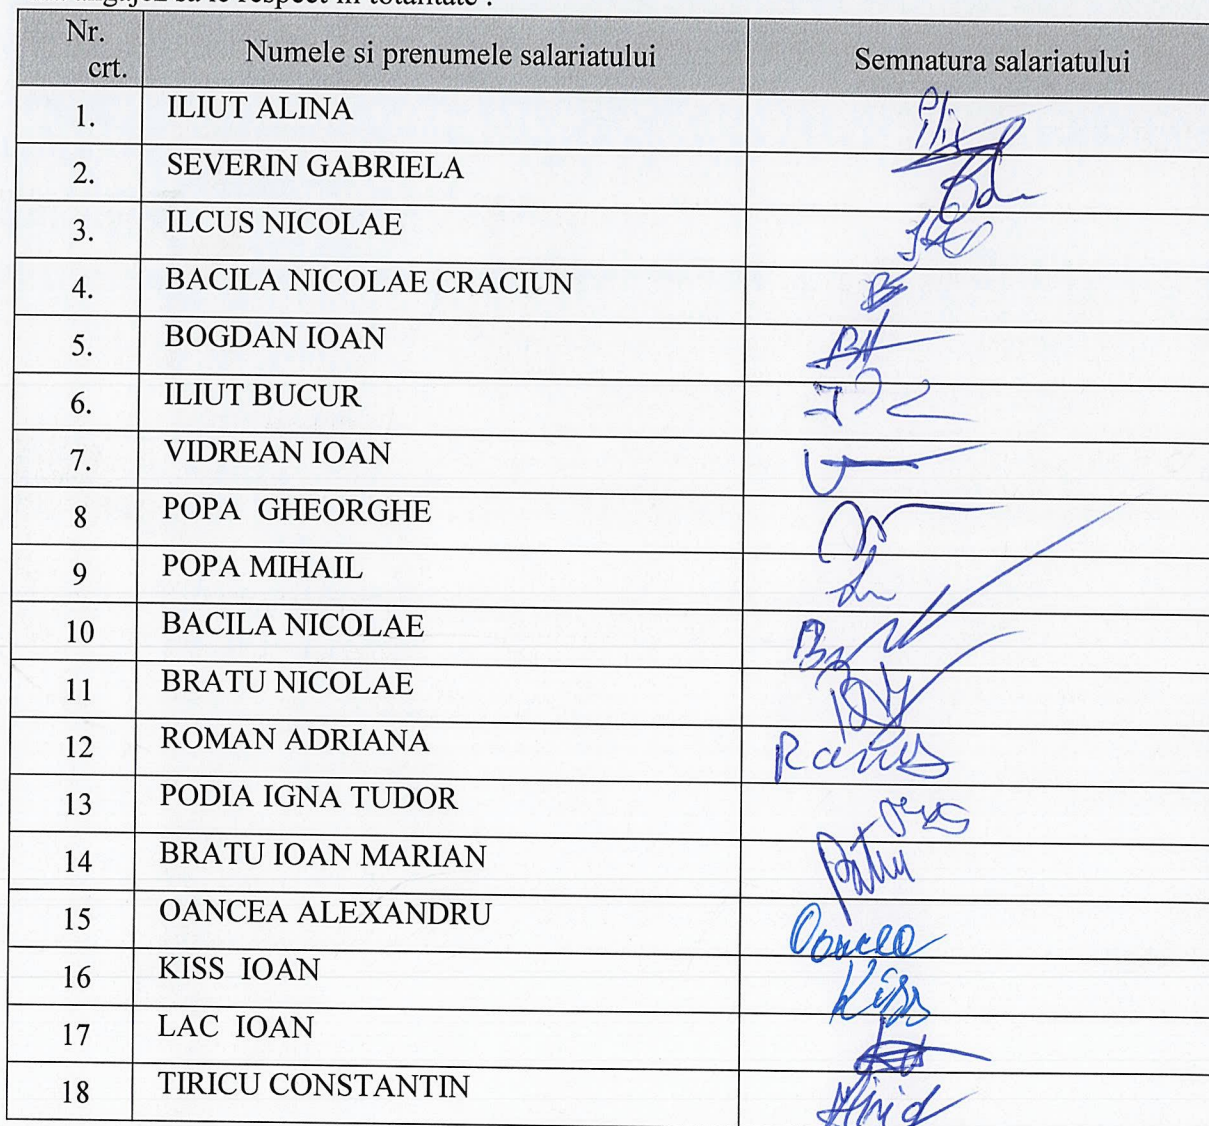 sa le respect in totalitate .
Nr. crt. Numele si prenumele salariatului Semnatura salariatului
1. ILIUT ALINA
2. SEVERIN GABRIELA
3. ILCUS NICOLAE
4. BACILA NICOLAE CRACIUN
5. BOGDAN IOAN
6. ILIUT BUCUR
7. VIDREAN IOAN
8 POPA GHEORGHE
9 POPA MIHAIL
10 BACILA NICOLAE
11 BRATU NICOLAE
12 ROMAN ADRIANA
13 PODIA IGNA TUDOR
14 BRATU IOAN MARIAN
15 OANCEA ALEXANDRU
16 KISS IOAN Kiss
17 LAC IOAN
18 TIRICU CONSTANTIN